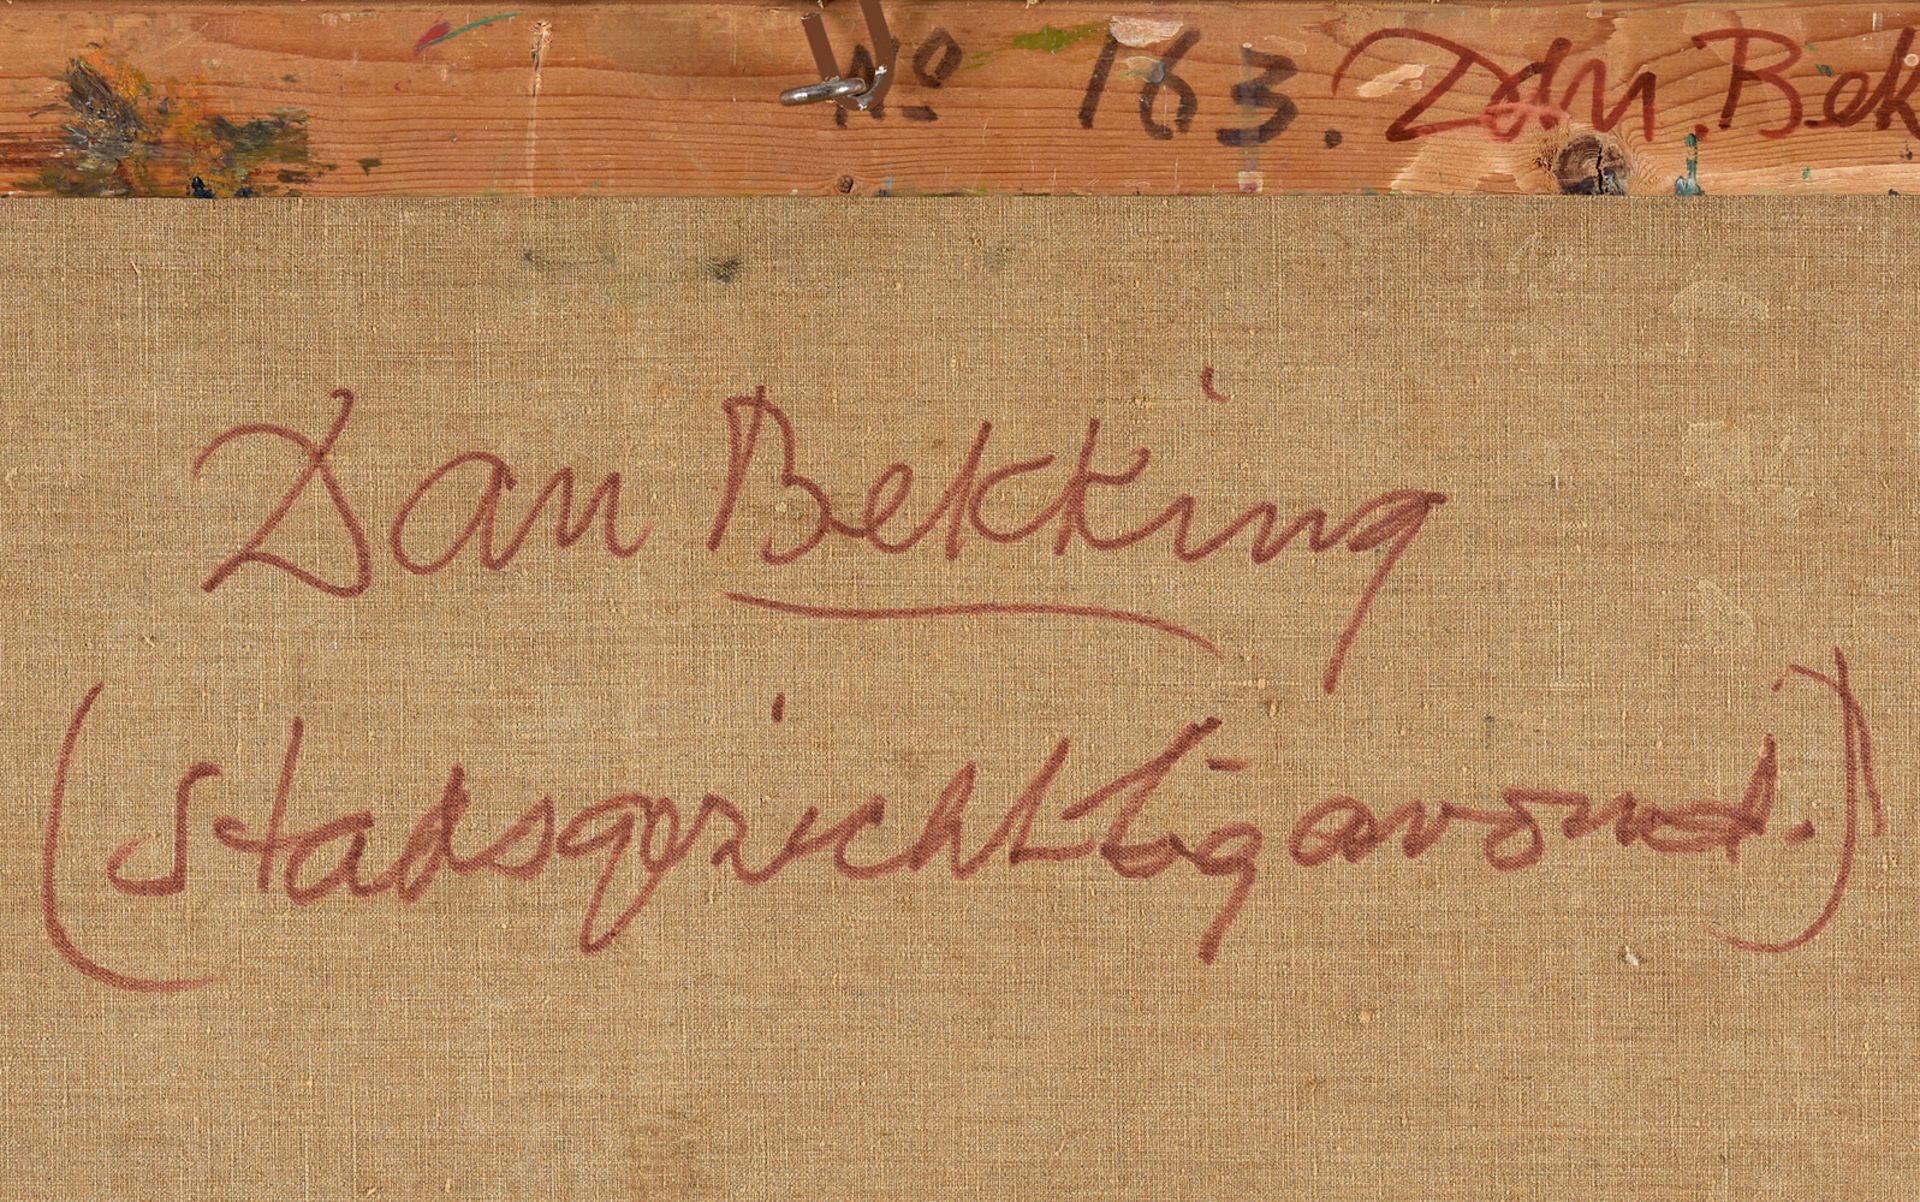 No 163. Dan. Bek
Dan Bekking
(stadsgezicht bij avond.)